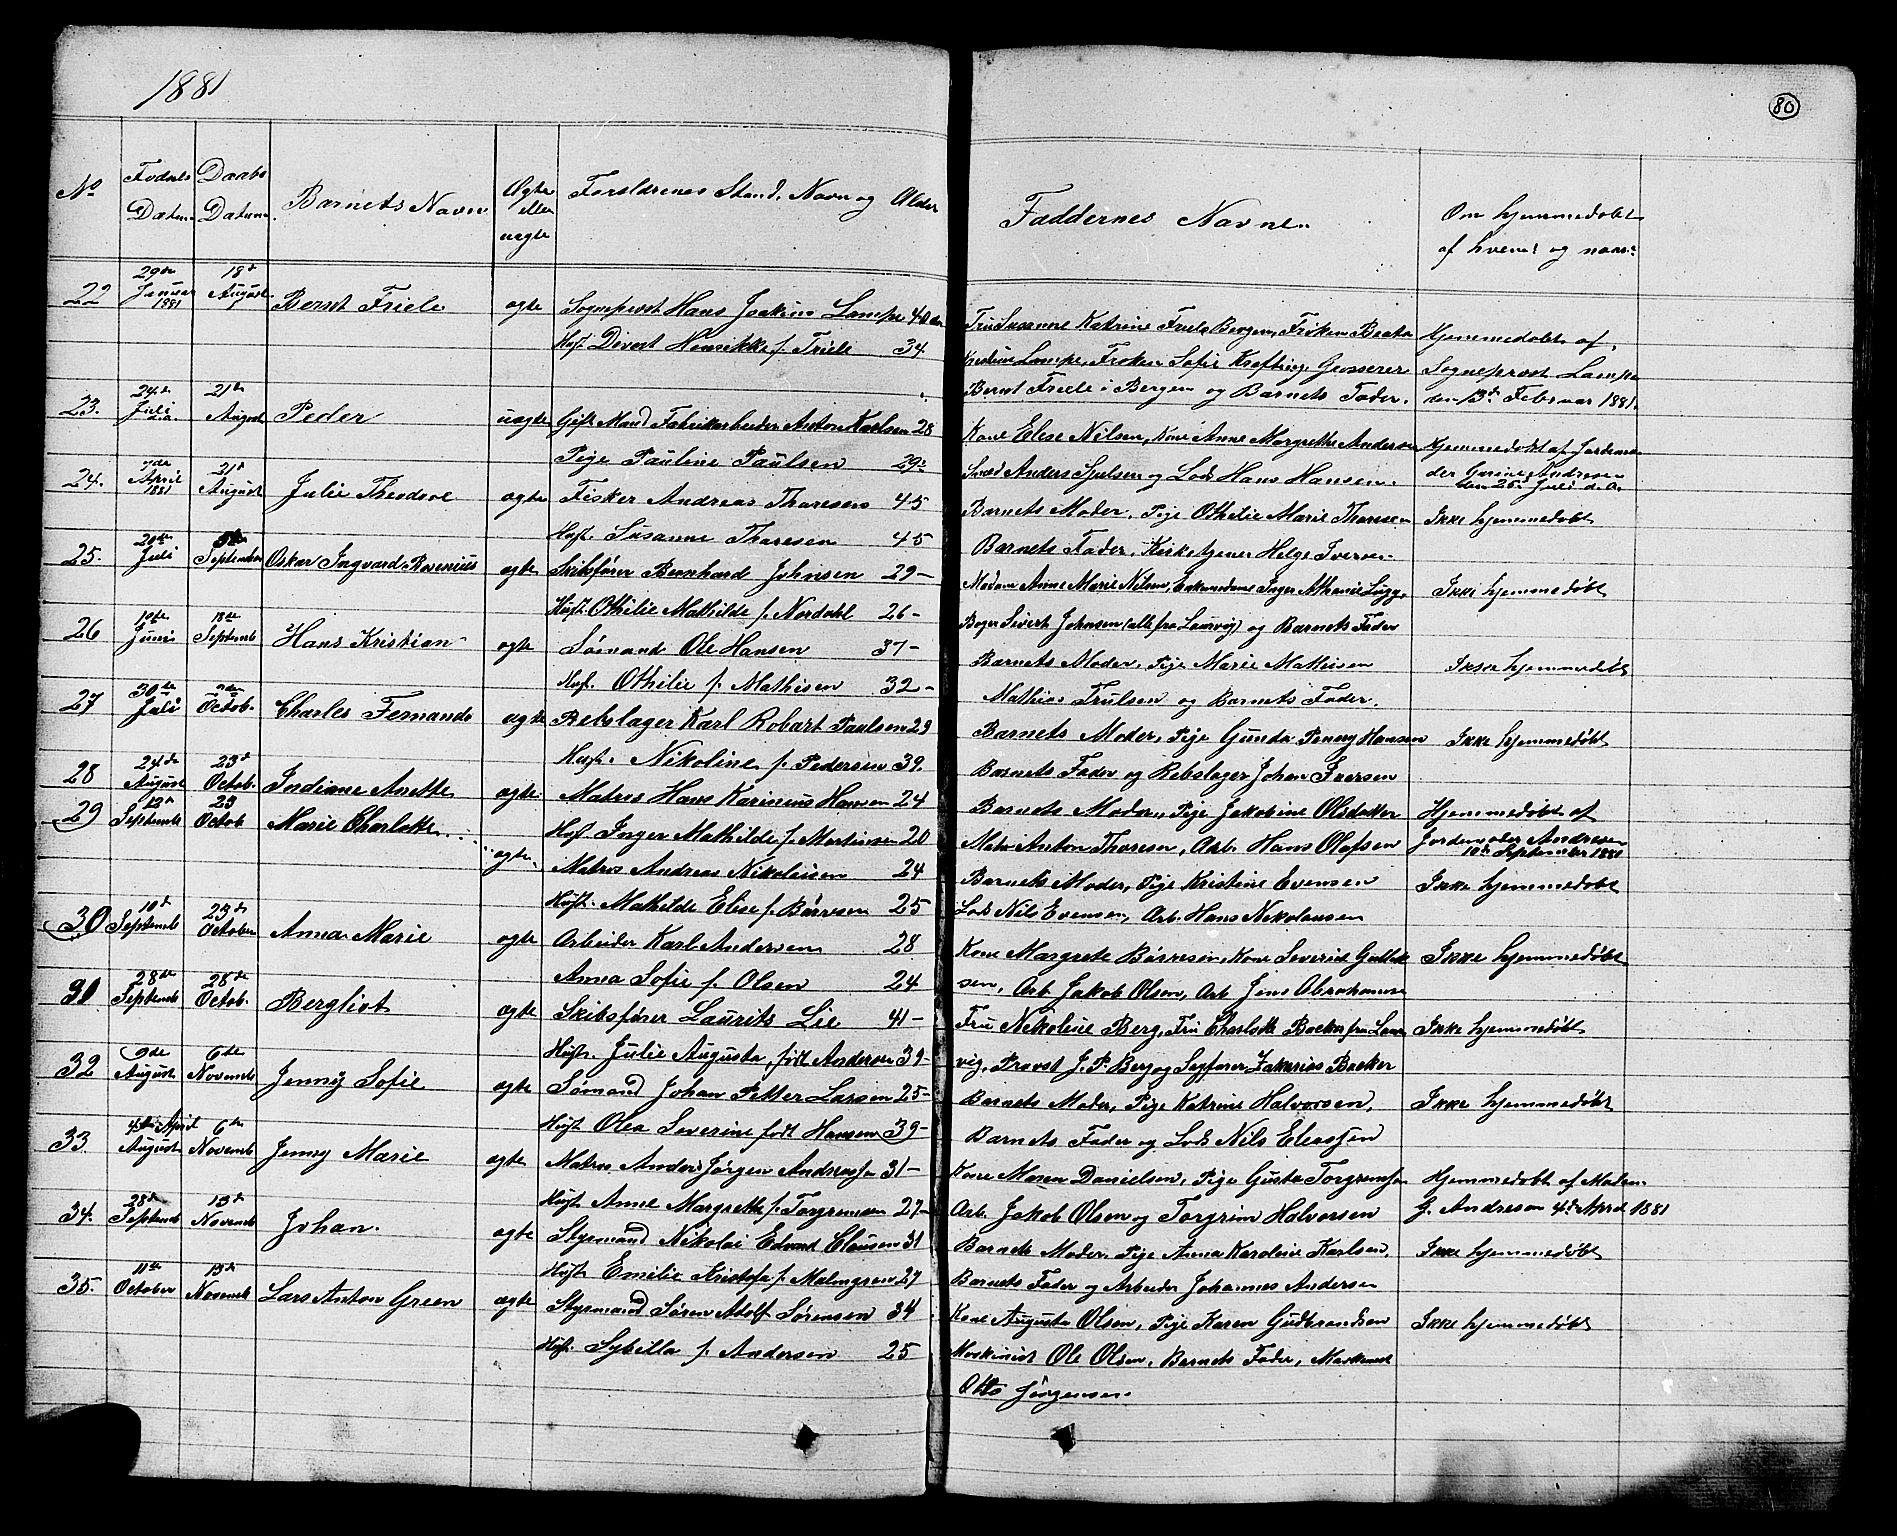 1881
80
No Fødsels Datum Daabs Datum Barnets Navn Ægte eller uægte Forældrenes Stand, Navn og Alder Faddernes Navne. Om hjemmedøbt af hvem? og naar?
22 29de Januar 1881 18de August Bernt Friele ægte Sogneprest Hans Joakim Lampe 40
Hust. Divert Henrikke f. Friele 34
Fru Susanne Katrine Friele Bergen, Frøken Beata
Kristine Lampe, Frøken Sofie Krefting, Grosserer
Bernt Friele i Bergen og Barnets Fader.
Hjemmedøbt af
Sogneprest Lampe
den 13de Februar 1881.
23. 24de Juli d.a. 21de August Peder uægte Gift Mand Fabrikarbeider Anton Karlsen 28
Pige Pauline Paulsen 29
Kone Elise Nilsen, Kone Anne Margrethe Andersen
Smed Anders Sjulsen og Lods Hans Hansen.
Hjemmedøbt af Jordemo
der Gurine Andresen
den 25de Juli d.a.
24. 7de April 1881 21de August Julie Theodore ægte Fisker Andreas Thoresen 45
Hust. Susanne Thoresen 45
Barnets Moder, Pige Othelie Marie Thoresen
Barnets Fader, Kirketjener Helge Iversen
Ikke hjemmedøbt
25. 20de Juli September Oskar Ingvard Rosenius ægte Skibsfører Bernhard Johnsen 29-
Hust. Othilie Mathilde f. Nordahl 26-
Madam Anne Marie Nilsen, Enkemadame Inger Athanie Lugg,
Bager Sivert Johnsen (alle fra Laurvig) og Barnets Fader
Ikke hjemmedøbt
26 19de Juni 18de Septemb Hans Kristian ægte Sømand Ole Hansen 37-
Hust. Othilie f. Mathisen 32-
Barnets Moder, Pige Marie Mathisen
Mathias Trulsen og Barnets Fader.
Ikke hjemmedøbt
27 30de Juli 2de Octob. Charles Fernando ægte Rebslager Karl Robart Paulsen 29
Hust. Nikoline f. Pedersen 39.
Barnets Moder, Pige Gunda Penny Hansen
Barnets Fader og Rebslager Johan Iversen
Ikke hjemmedøbt
28 24de August 23de Octob. Indiane Anette ægte Matros Hans Karinius Hansen 24
Hust. Inger Mathilde f. Martinsen 20
Barnets Moder, Pige Jakobine Olsdatter
Matr. Anton Thoresen, Arb. Hans Olafsen
Hjemmedøbt af
Jordemoder Andresen
10de September 1881
29 13de Septemb 23 Octob Marie Charlotte ægte Matros Andreas Nikolaisen 24
Hust. Mathilde Elise f. Børresen 25
Barnets Moder, Pige Kristine Evensen
Lods Nils Evensen, Arb. Hans Nikolausen
Ikke hjemmedøbt
30 10de Septemb 23de October Anna Marie ægte Arbeider Karl Andersen 28
Anna Sofie f. Olsen 24
Kone Margrete Børresen, Kone Severine Gullik
sen, Arb. Jakob Olsen, Arb Jens Abrahamsen
Ikke hjemmedøbt
31 28de Septemb 28de Octob. Bergliot ægte Skibsfører Laurits Lie 41-
Hust. Julie Augusta, født Andersen 39-
Fru Nikoline Berg, Fru Charlotte Backer fra Laur
vig, Provst J. P. Berg og Sagfører Zakarias Backer
Ikke hjemmedøbt
32 9de August 6te Novemb Jenny Sofie ægte Sømand Johan Petter Larsen 25-
Hust. Olea Severine født Hansen 39-
Barnets Moder, Pige Katrine Halvorsen,
Barnets Fader og Lods Nils Eliassen
Ikke hjemmedøbt
33. 4de April August 6te Novemb Jenny Marie ægte Matros Anders Jørgen Andreassen 31-
Hust. Anne Margrethe f. Torgrimsen 27-
Kone Maren Danielsen, Pige Gusta Torgrimsen
Arb. Jakob Olsen og Torgrim Halvorsen
Hjemmedøbt af Madam
G. Andresen 4de April 1881
34. 28de Septemb 13de Novemb Johan. ægte Styrmand Nikolai Edvard Clausen 31
Hust. Emilie Kristofa f. Malmgren 27
Barnets Moder, Pige Anna Karoline Karlsen,
Barnets Fader og Arbeider Johannes Andersen
Ikke hjemmedøbt
35. 11te October 13de Novemb Lars Anton Green ægte Styrmand Søren Adolf Sørensen 34
Hust. Sybilla f. Andersen 25
Kone Augusta Olsen, Pige Karen Gudbrandsen
Maskinist Ole Olsen, Barnets Fader, Maskinist
Otto Jørgensen.
Ikke hjemmedøbt